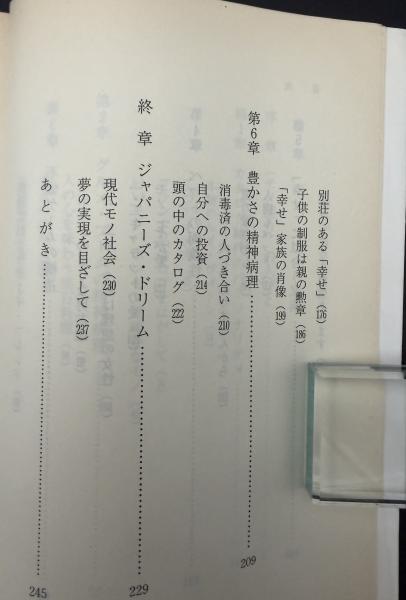 別荘のある「幸せ」(176)
子供の制服は親の勲章(186)
「幸せ」家族の肖像(199)
第6章 豊かさの精神病理……………………209
消毒済の人づき合い(210)
自分への投資(214)
頭の中のカタログ(222)
終章 ジャパニーズ・ドリーム……………………229
現代モノ社会(230)
夢の実現を目ざして(237)
あとがき……………………245